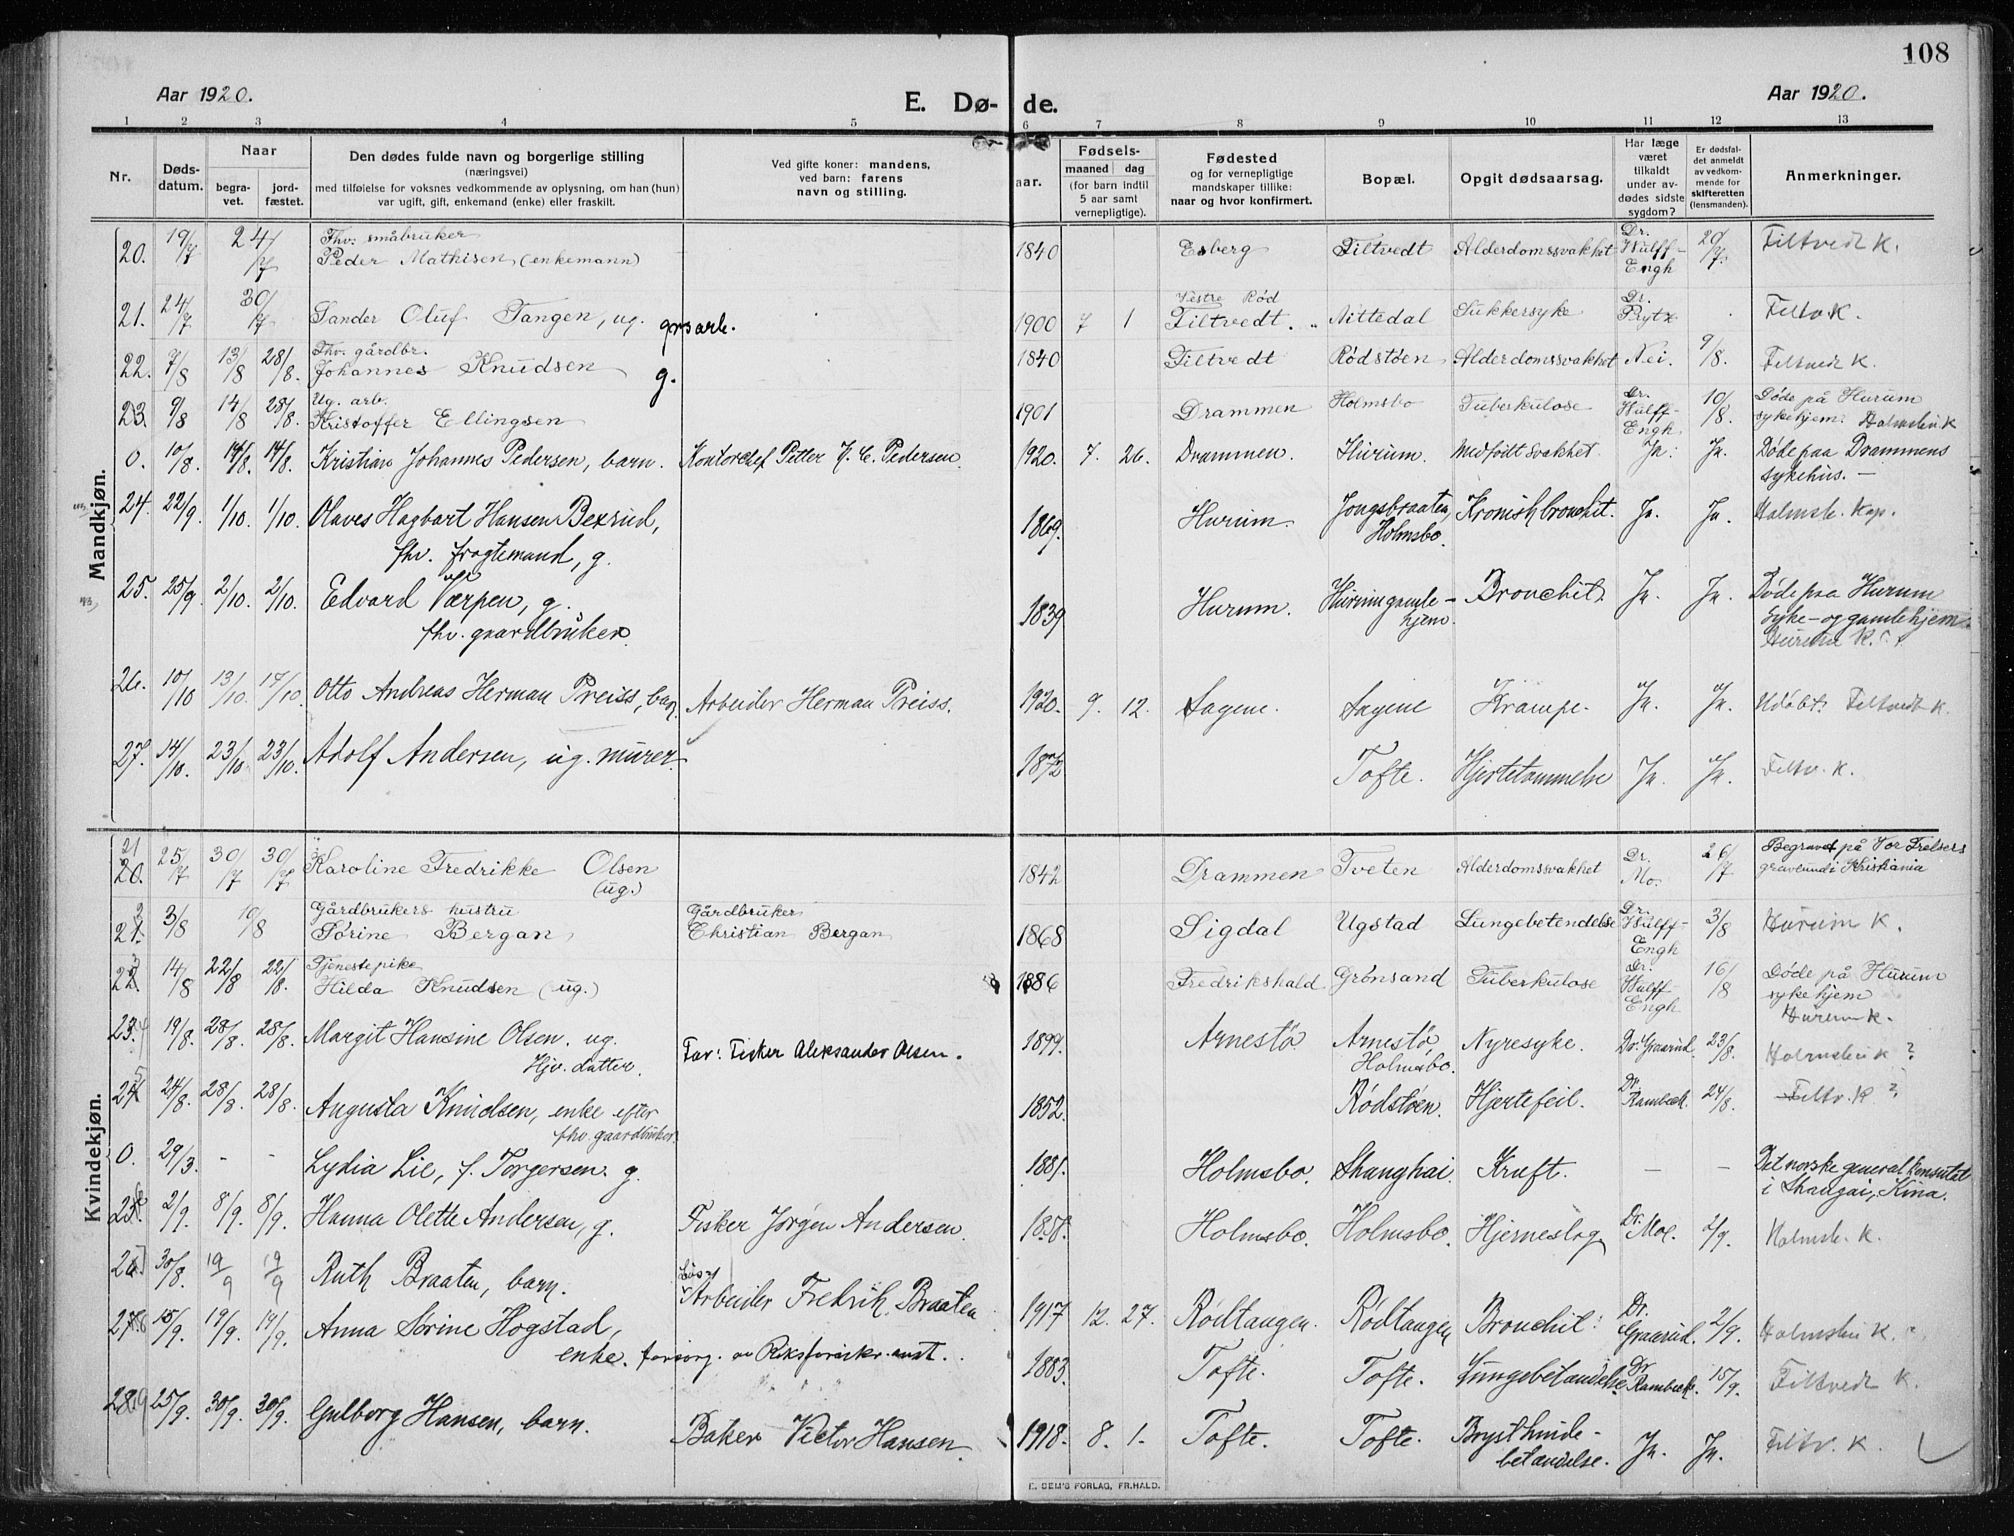 108
Aar 1920. E. Dø- de. Aar 1920.
1 2 3 4 5 6 7 8 9 10 11 12 13
Nr. Døds-datum. Naar begra-vet. jord-fæstet. Den dødes fulde navn og borgerlige stilling (næringsvei) med tilføielse for voksnes vedkommende av oplysning, om han (hun) var ugift, gift, enkemand (enke) eller fraskilt. Ved gifte koner: mandens, ved barn: farens navn og stilling. aar. Fødsels- maaned dag (for barn indtil 5 aar samt vernepligtige). Fødested og for vernepligtige mandskaper tillike: naar og hvor konfirmert. Bopæl. Opgit dødsaarsag. Har læge været tilkaldt under av-dødes sidste sygdom? Er dødsfal-det anmeldt av vedkom-mende for skifteretten (lensmanden). Anmerkninger.
Mandkjøn.
20. 19/7 24/7 Fhv. småbruker Peder Mathisen (enkemann) 1840 Esberg Filtvedt Alderdomssvakhet Dr. Wulff-Engh 20/7. Filtvedt K.
21. 24/7 30/7 Sander Oluf Tangen, ug. grsarb. 1900 7 1 Vestre Rød Filtvedt. Nittedal Sukkersyke Dr. Prytz Filtv K.
22. 7/8 13/8 28/8. Fhv. gårdbr. Johannes Knudsen g. 1840 Filtvedt Rødstøen Alderdomssvakhet Nei. 9/8. Filtvedt K.
23. 9/8 14/8 28/8. Ug. arb. Kristoffer Ellingsen 1901 Drammen Holmsbo Tuberkulose Dr. Wulff-Engh 10/8. Døde på Hurum sykehjem. Holmsbu K
0. 10/8. 14/8. 14/8. Kristian Johannes Pedersen, barn. Kontorchef Petter J. C. Pedersen. 1920. 7. 26. Drammen. Hurum. Medfødt svakhet. Ja. Ja. Døde paa Drammens sykehus. —
24. 22/9. 1/10. 1/10. Olaves Hagbart Hansen Bexrud, fhv. fragtemand, g. 1869. Hurum. Jongsbraaten, Holmsbo. Kronisk bronchit. Ja. Ja. Holmsb. Kap.
25. 25/9. 2/10. 2/10. Edvard Værpen, g. fhv. gaardbruker. 1839 Hurum. Hurum gamle-hjem. Bronchit. Ja. Ja. Døde paa Hurum Syke- og gamlehjem. Hurum K.
26. 10/10 13/10. 17/10. Otto Andreas Herman Preiss, barn. Arbeider Herman Preiss. 1920. 9. 12. Sagene. Sagene Krampe. Ja. Ja. Udøbt. Filtvedt K.
27. 14/10. 23/10 23/10. Adolf Andersen, ug. murer. 1872 Tofte. Hjertelammelse Ja. Ja. Filtv. K.
Kvindekjøn.
21 20. 25/7 30/7 30/7 Karoline Fredrikke Olsen (ug.) 1842 Drammen Tveten Alderdomssvakhet Dr. Mo. 26/7 Begravet på Vor Frelsers gravlund i Kristiania
21. 3/8 10/8 Gårdbrukers hustru Sørine Bergan Gårdbruker Christian Bergan 1868 Sigdal Ugstad Lungebetendelse Dr. Wulff-Engh 3/8 Hurum K.
22. 14/8 22/8 22/8. Tjenestepike Hilda Knudsen (ug.) 1886 Fredrikshald Grønsand Tuberkulose Dr. Wulff-Engh 16/8 Døde på Hurum sykehjem Hurum K.
23. 19/8. 28/8. 28/8. Margit Hansine Olsen. ug. Hjv. datter. Far: Fisker Aleksander Olsen. 1899. Arnestø Arnestø, Holmsbo. Nyresyke. Dr. Graarud. 23/8. Holmsbu K ?
24 24/8. 28/8. 28/8. Augusta Knudsen, enke efter fhv. gaardbruker. 1852. Rødstøen. Hjertefeil. Dr. Rambæk. 24/8. Filtv. K ?
0. 29/3. - - Lydia Lie, f. Torgersen. g. 1881. Holmsbo. Shanghai. Kræft. — — Det norske generalkonsulat i Shangai, Kina.
25. 2/9. 8/9. 8/9. Hanna Olette Andersen, g. Fisker Jørgen Andersen. 1858. Holmsbo. Holmsbo. Hjerneslag Dr. Moe. 2/9. Holmsb. K.
26 30/8. 19/9 19/9 Ruth Braaten, barn. Løs- Arbeider Fredrik Braaten 1917 12. 27. Rødtangen. Rødtangen Bronchit. Dr. Graarud. 2/9. Holmsbu K.
27 15/9. 19/9. 19/9. Anna Sørine Hogstad, enke. forsørg. av Riksforsikr. anst. 1883. Tofte. Tofte. Lungebetændelse Dr. Rambæk. 15/9. Filtvedt K.
28 25/9. 30/9. 30/9. Gulborg Hansen, barn. Baker Victor Hansen. 1918. 8. 1. Tofte. Tofte. Brysthinde-betændelse. Ja. Ja. Filtv. K.
E. SEM'S FORLAG, FR.HALD.